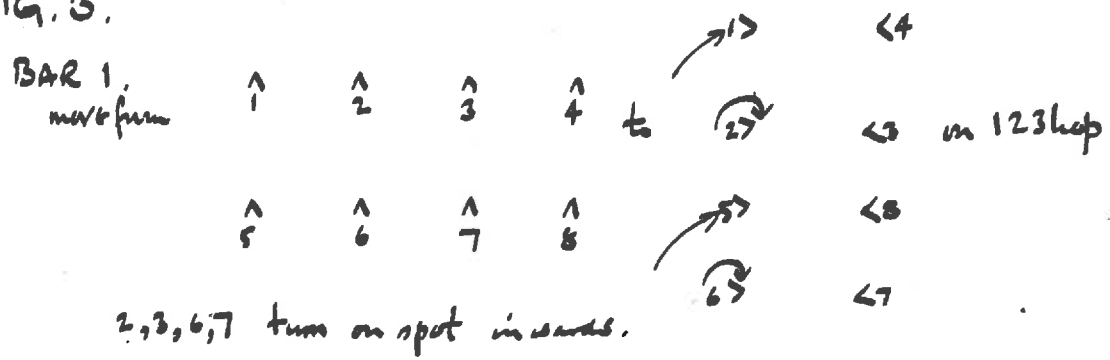 FIG. 3.
1> <4
BAR 1.
^ ^ ^ ^
move from 1 2 3 4 to 2> <3 on 123hop
^ ^ ^ ^ 5> <8
5 6 7 8
6> <7
2,3,6,7 turn on spot inwards.